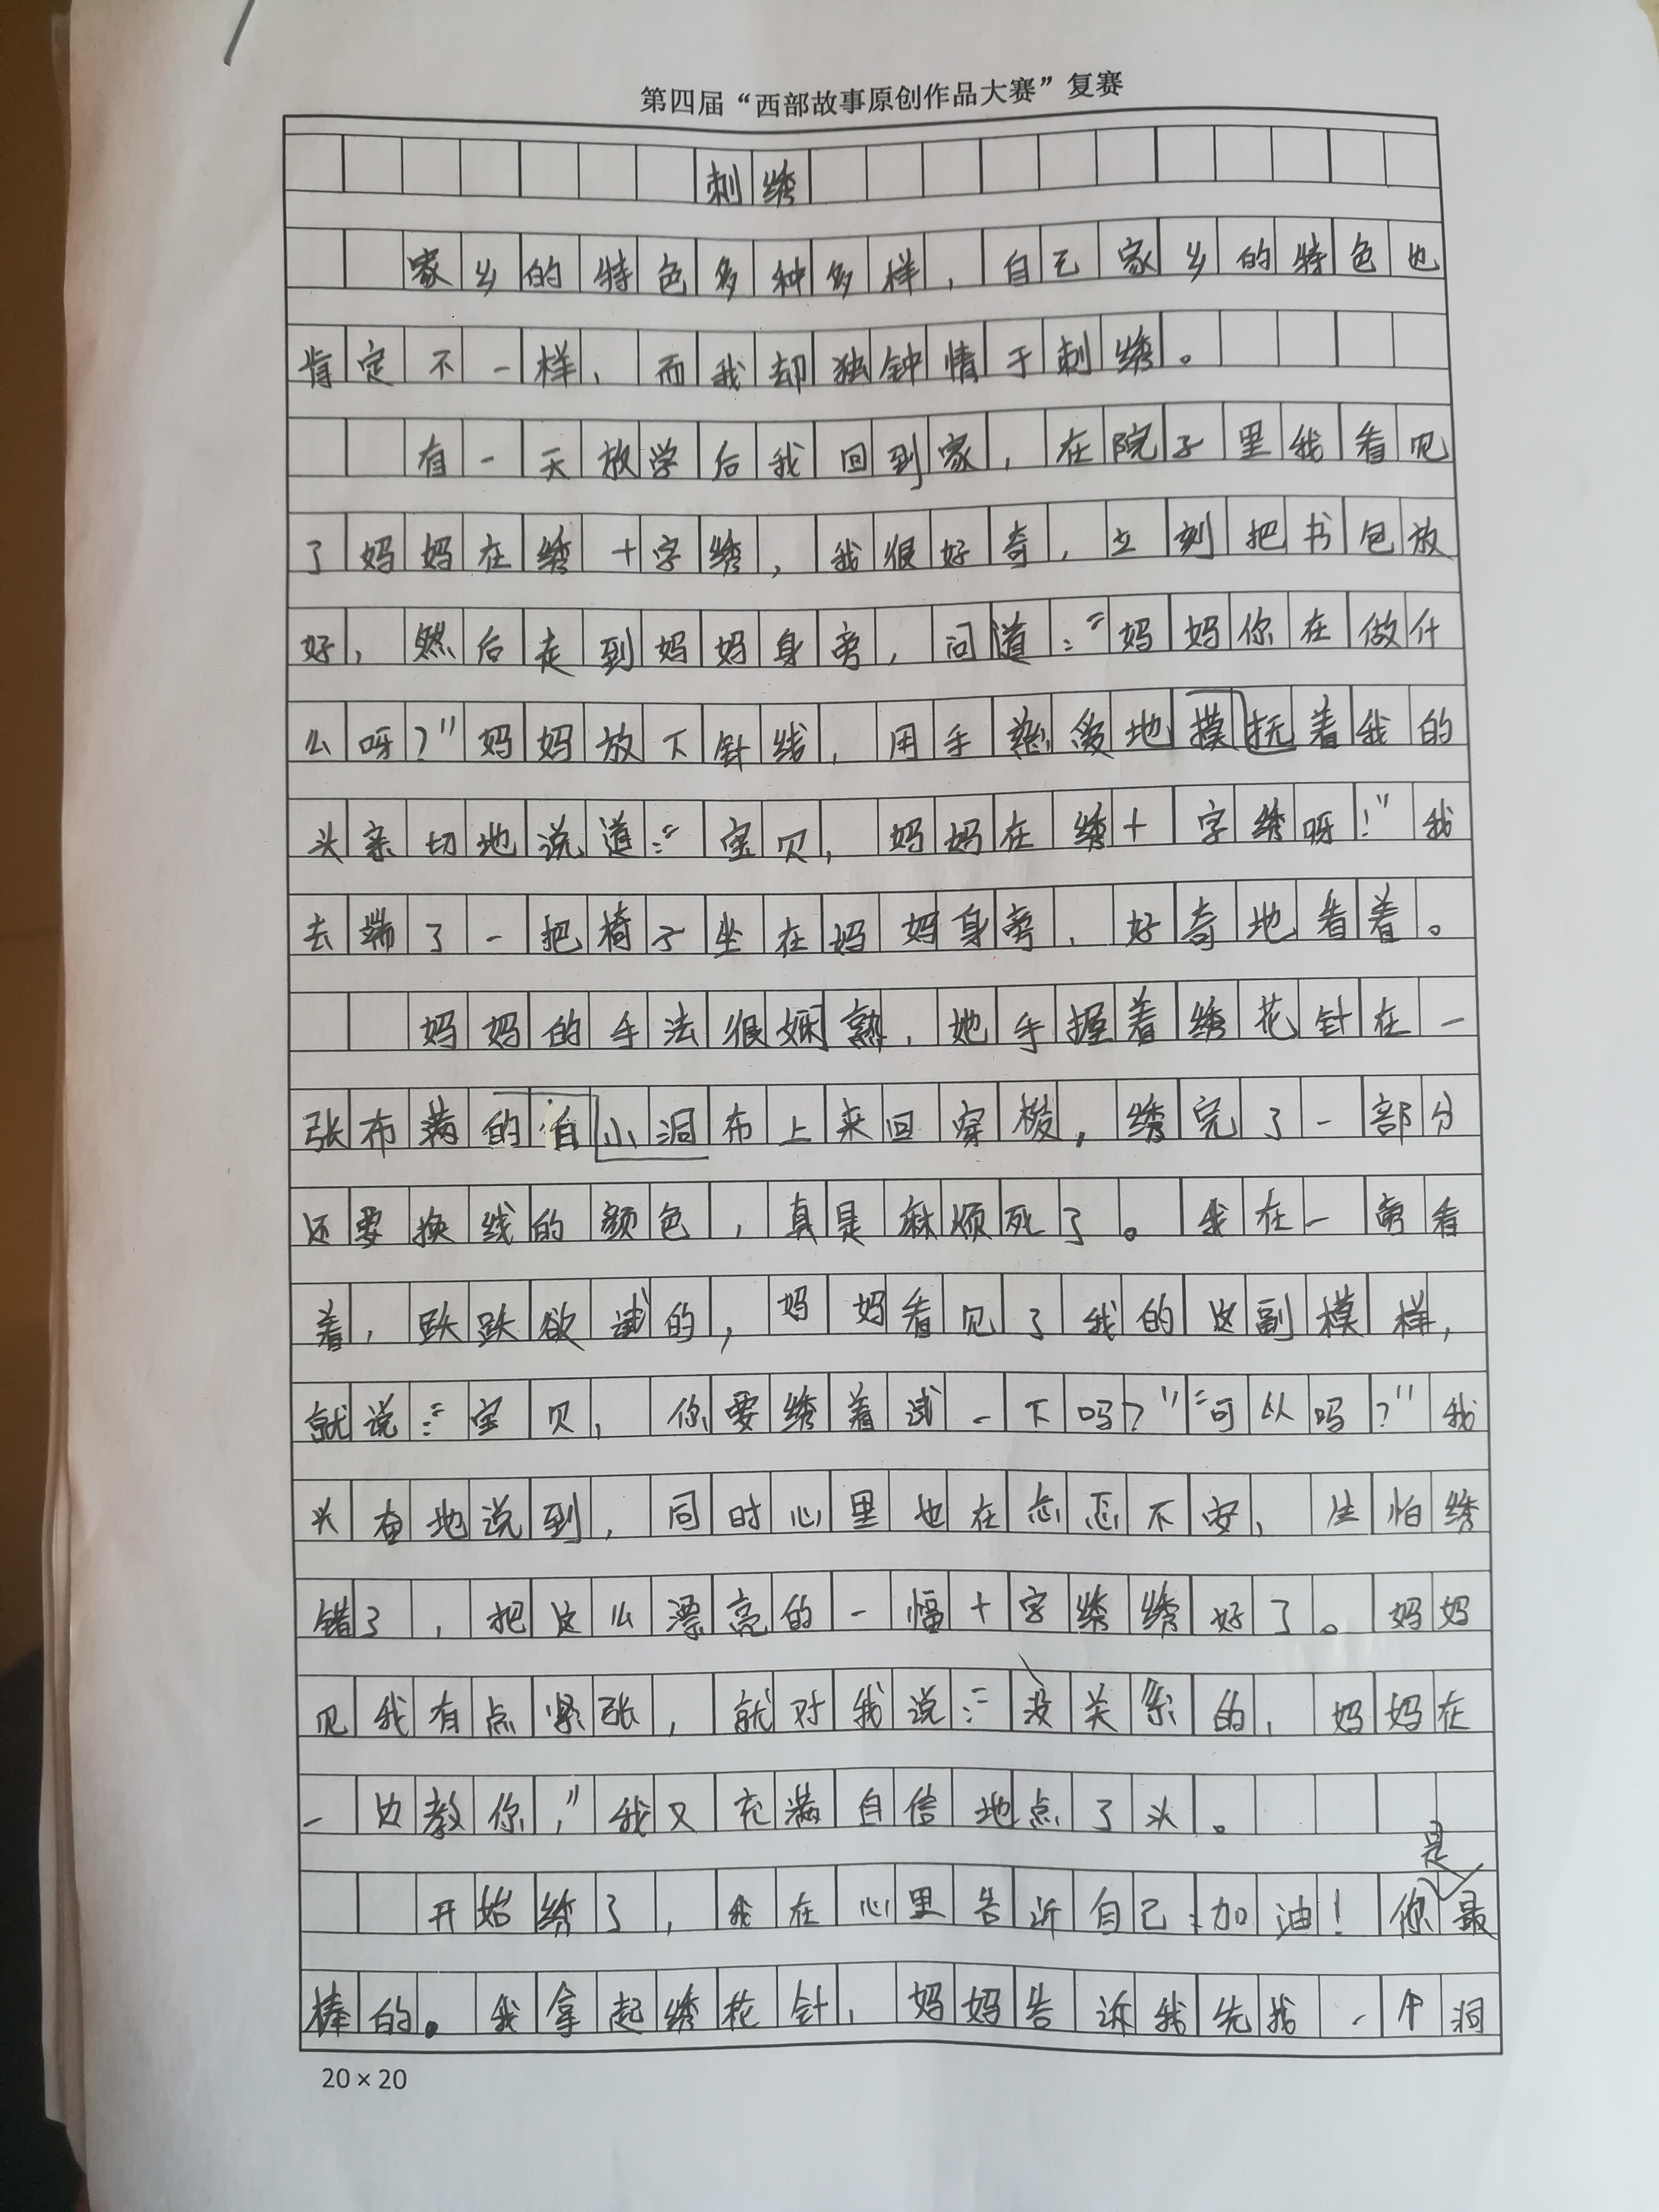 第四届“西部故事原创作品大赛”复赛
刺绣
家乡的特色多种多样，自己家乡的特色也
肯定不一样，而我却独钟情于刺绣。
有一天放学后我回到家，在院子里我看见
了妈妈在绣十字绣，我很好奇，立刻把书包放
好，然后走到妈妈身旁，问道：“妈妈你在做什
么呀？”妈妈放下针线，用手慈爱地摸抚着我的
头亲切地说道：“宝贝，妈妈在绣十字绣呀！”我
去端了一把椅子坐在妈妈身旁，好奇地看着。
妈妈的手法很娴熟，她手握着绣花针在一
张布满的白小洞布上来回穿梭，绣完了一部分
还要换线的颜色，真是麻烦死了。我在一旁看
着，跃跃欲试的，妈妈看见了我的这副模样，
就说：“宝贝，你要绣着试一下吗？”“可以吗？”我
兴奋地说到，同时心里也在忐忑不安，生怕绣
错了，把这么漂亮的一幅十字绣绣好了。妈妈
见我有点紧张，就对我说：“没关系的，妈妈在
一边教你，”我又充满自信地点了头。
是
开始绣了，我在心里告诉自己：加油！你最
棒的。我拿起绣花针，妈妈告诉我先找一个洞
20×20